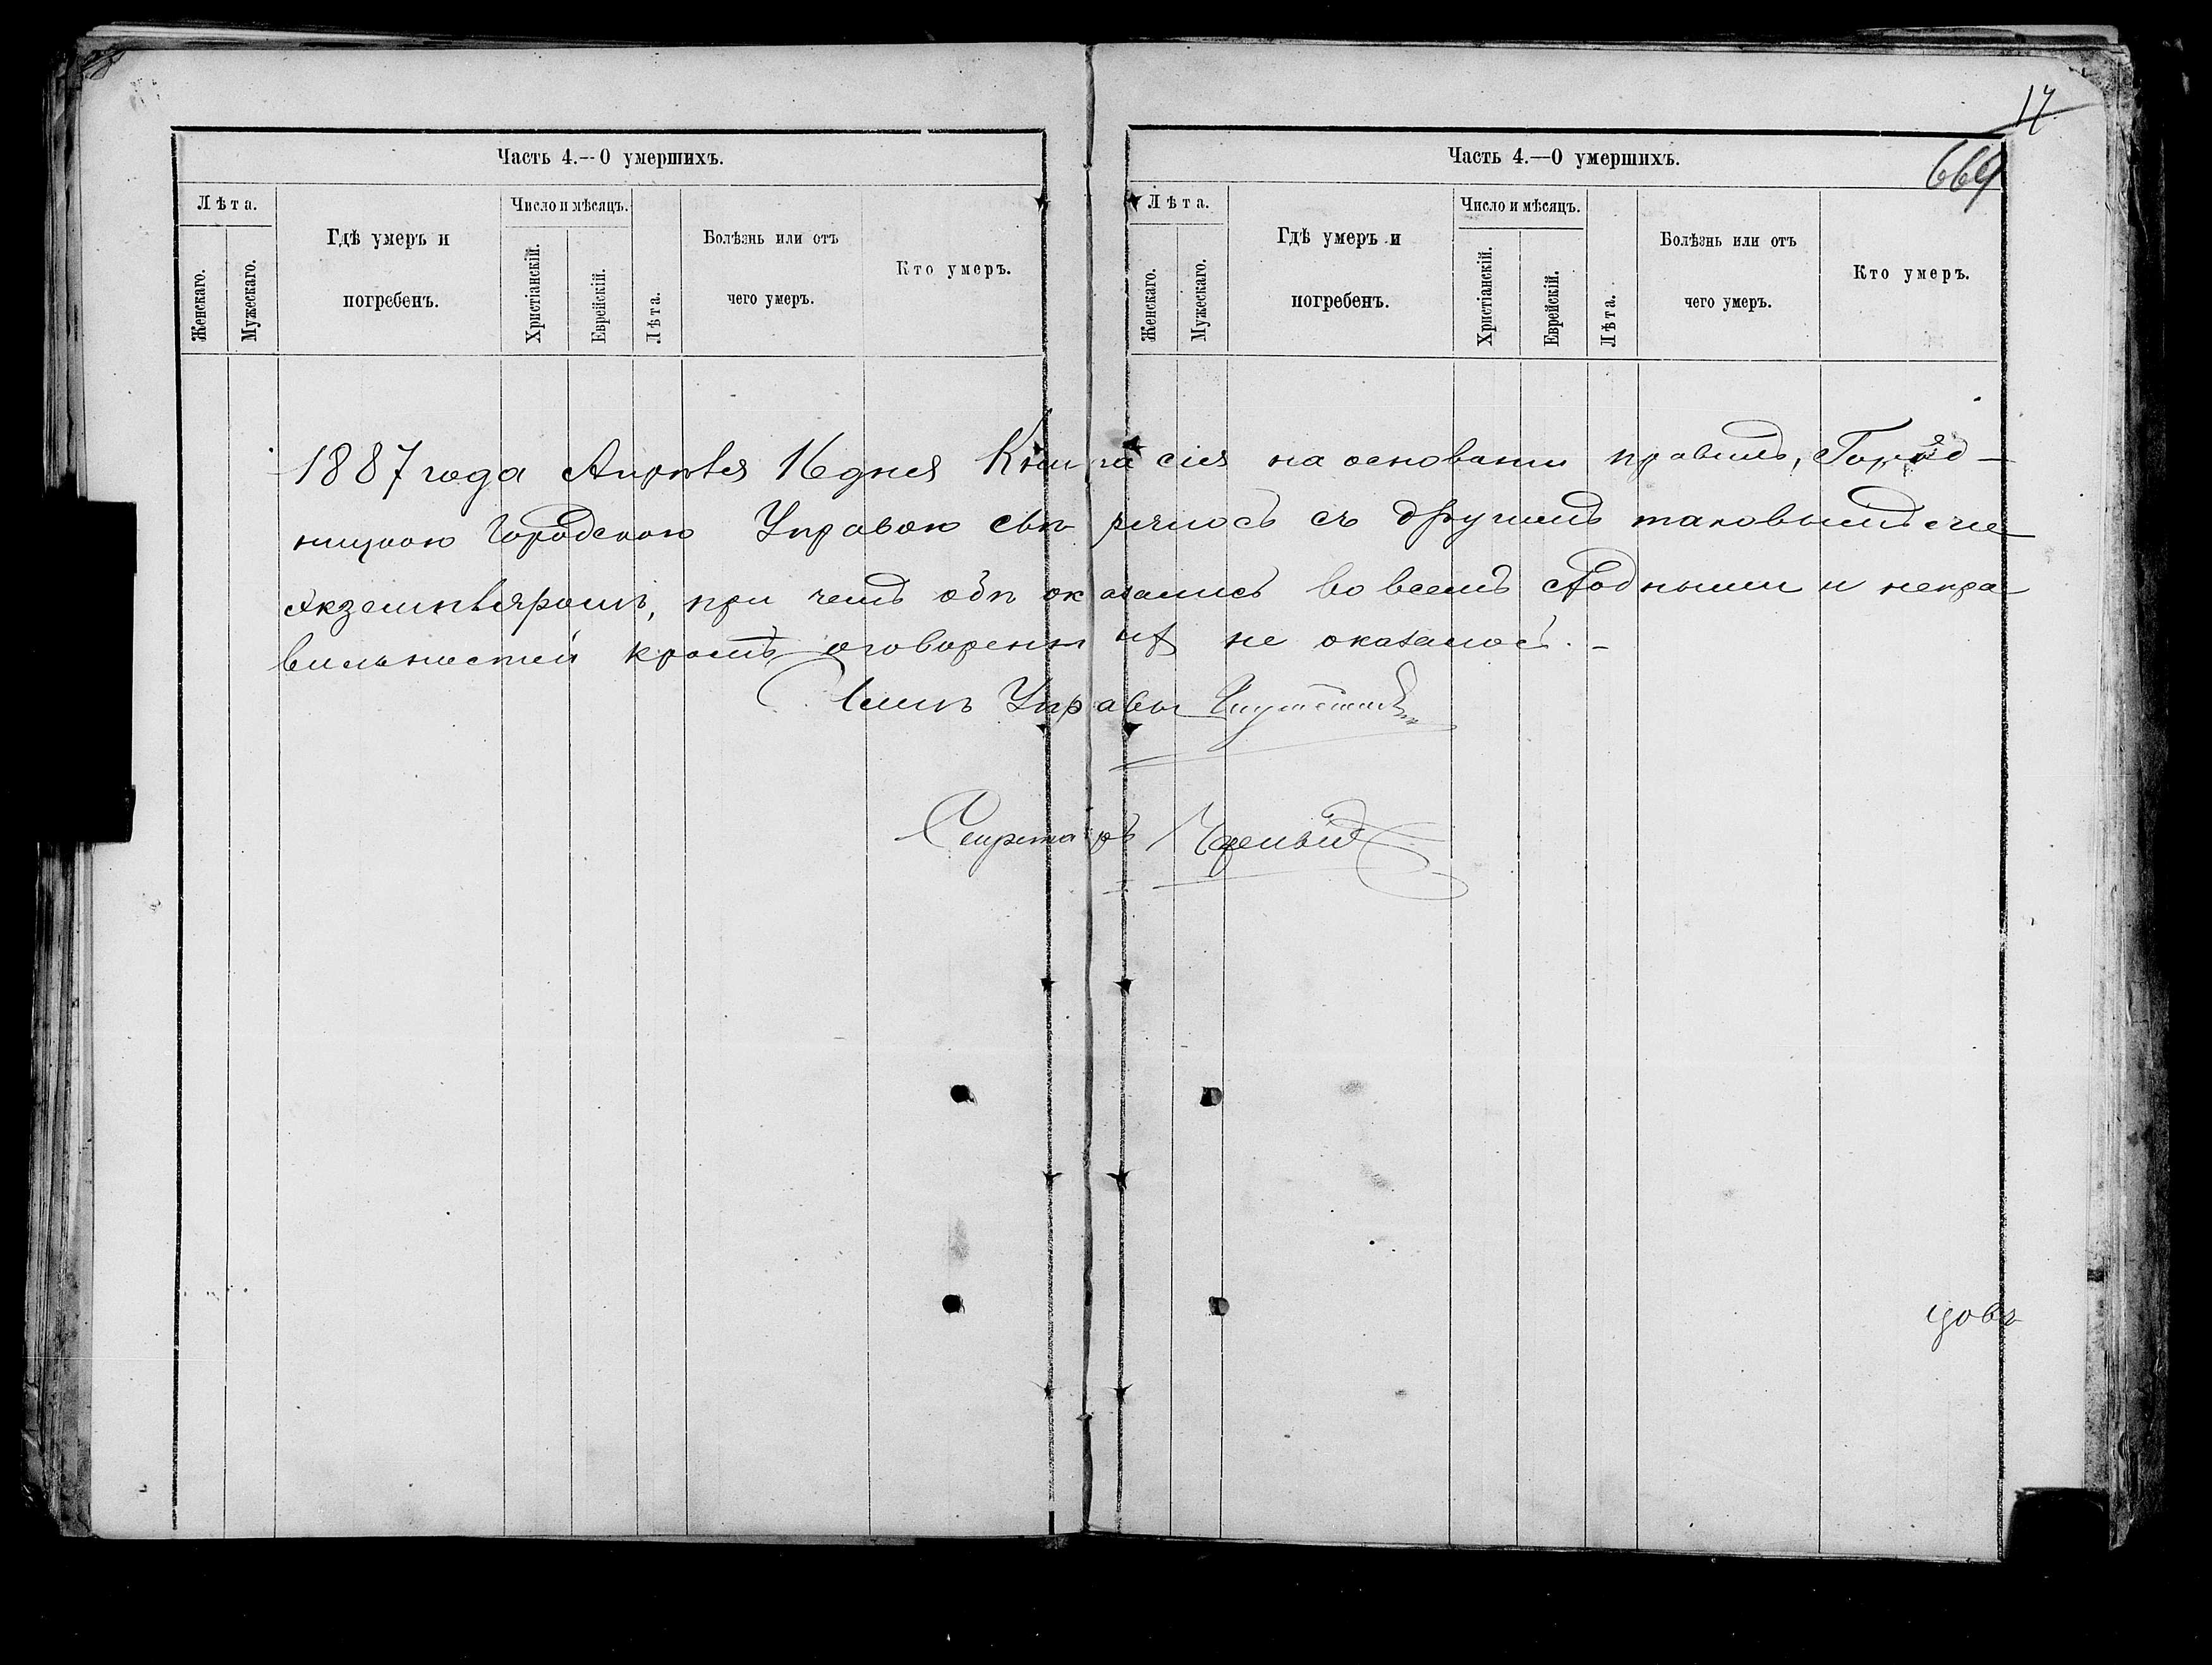 17
669
Часть 4.—О умершихъ.
Лѣта.
Женскаго.
Мужескаго.
Гдѣ умеръ и
погребенъ.
Число и мѣсяцъ.
Христіанскій.
Еврейскій.
Лѣта.
Болѣзнь или отъ
чего умеръ.
Кто умеръ.
Часть 4.—О умершихъ.
Лѣта.
Женскаго.
Мужескаго.
Гдѣ умеръ и
погребенъ.
Число и мѣсяцъ.
Христіанскій.
Еврейскій.
Лѣта.
Болѣзнь или отъ
чего умеръ.
Кто умеръ.
1887 года Апрѣля 16 дня Книга сія на основаніи правилъ, Город-
ницкою Городскою Управою свѣрялось съ другимъ таковымъ же
экземпляромъ, при чемъ обѣ оказались во всемъ сходными и непра
вильностей кромѣ оговоренныхъ не оказалось.-
Членъ Управы
Секретарь
цовъ